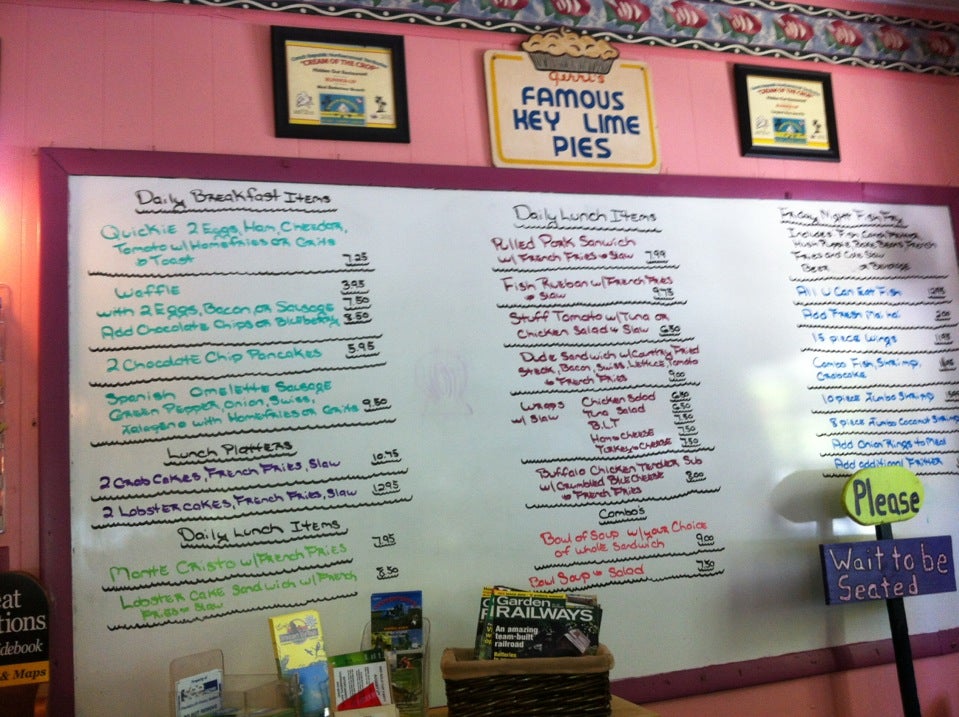 "CREAM OF THE CROP"
Gerri's
FAMOUS
KEY LIME
PIES
"CREAM OF THE CROP"
Daily Breakfast Items
Quickie 2 Eggs, Ham, Cheddar,
Tomato w/Homefries or Grits
& Toast 7.25
Waffle 3.95
with 2 Eggs, Bacon, or Sausage 7.50
Add Chocolate Chips or Blueberry 8.50
2 Chocolate Chip Pancakes 5.95
Spanish Omelette Sausage
Green Pepper, Onion, Swiss,
Jalapeno with Homefries or Grits 9.50
Lunch Platters
2 Crab Cakes, French Fries, Slaw 10.75
2 Lobster Cakes, French Fries, Slaw 12.95
Daily Lunch Items
Monte Cristo w/French Fries 7.95
Lobster Cake Sandwich w/French
Fries & Slaw 8.50
Daily Lunch Items
Pulled Pork Sandwich
w/ French Fries & Slaw 7.99
Fish Rueban w/French Fries
& Slaw 9.75
Stuff Tomato w/Tuna or
Chicken Salad & Slaw 6.50
Dude Sandwich w/Country Fried
Steak, Bacon, Swiss, Lettuce, Tomato
& French Fries 9.00
Wraps Chicken Salad 6.50
w/ Slaw Tuna Salad 6.50
B.L.T 7.50
Ham & Cheese 7.50
Turkey & Cheese 7.50
Buffalo Chicken Tender Sub
w/ Crumbled Blue Cheese 8.00
& French Fries
Combo's
Bowl of Soup w/ your Choice
of Whole Sandwich 9.00
Bowl Soup & Salad 7.50
Friday Night Fish Fry
Includes Fish, Conch Fritter
Hush Puppie, Bake Beans, French
Fries and Cole Slaw
Beer or Beverage
All U Can Eat Fish 12.95
Add Fresh Mai hai 2.00
15 piece Wings 11.95
Combo Fish, Shrimp,
Crabcake
10 piece Jumbo Shrimp
8 piece Jumbo Coconut Shrimp
Add Onion Rings to Meal
Add additional Fritter
Please
Wait to be
Seated
Garden
RAILWAYS
An amazing
team-built
railroad
eat
tions
idebook
& Maps